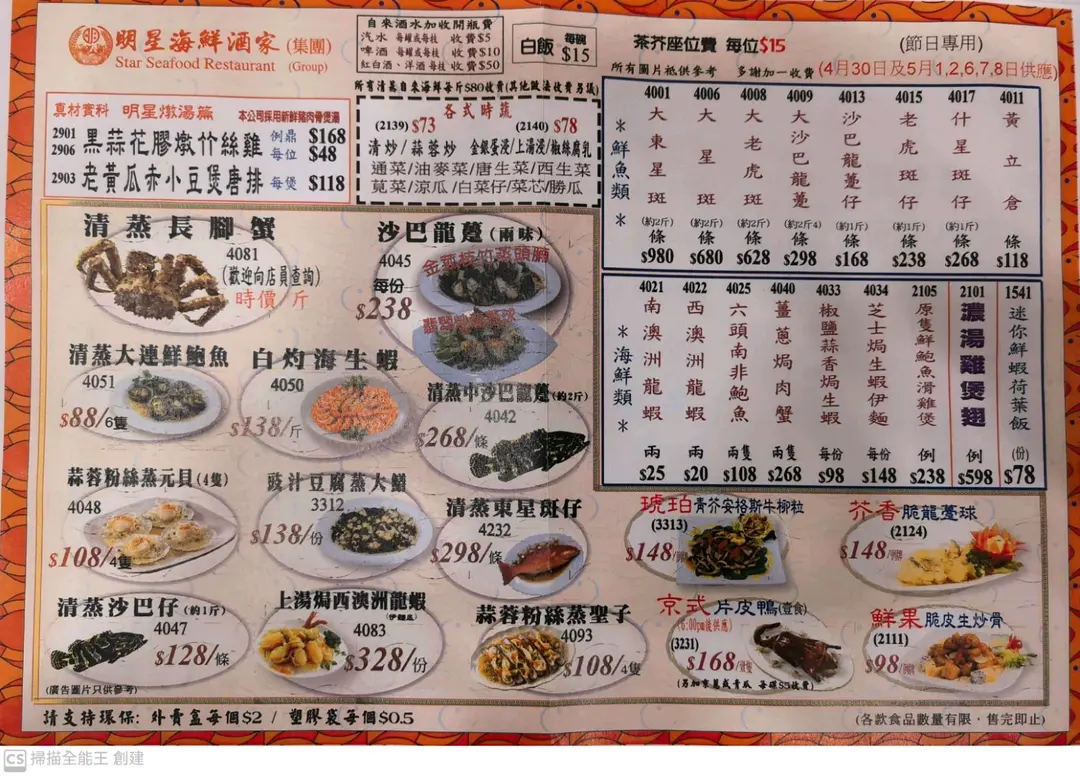 明星海鮮酒家 (集團)
Star Seafood Restaurant (Group)
自來酒水加收開瓶費
汽水 每罐或每枝 收費$5
啤酒 每罐或每枝 收費$10
紅白酒、洋酒 每枝 收費$50
白飯 每碗 $15
茶芥座位費 每位$15
(節日專用)
所有圖片祗供參考 多謝加一收費
(4月30日及5月1,2,6,7,8日供應)
所有清蒸自來海鮮每斤$80收費(其他做法收費另議)
真材實料 明星燉湯篇 本公司採用新鮮豬肉骨煲湯
2901 黑蒜花膠燉竹絲雞 例鼎 $168
2906 每位 $48
2903 老黃瓜赤小豆煲唐排 每煲 $118
各式時蔬
(2139) $73 (2140) $78
清炒/蒜蓉炒 金銀蛋浸/上湯浸/椒絲腐乳
通菜/油麥菜/唐生菜/西生菜
莧菜/涼瓜/白菜仔/菜芯/勝瓜
*鮮魚類*
4001 大東星斑 (約2斤) 條 $980
4006 大星斑 (約2斤) 條 $680
4008 大老虎斑 (約2斤) 條 $628
4009 大沙巴龍躉 (約2斤4) 條 $298
4013 沙巴龍躉仔 (約1斤) 條 $168
4015 老虎斑仔 (約1斤) 條 $238
4017 什星斑仔 (約1斤) 條 $268
4011 黃立倉 條 $118
*海鮮類*
4021 南澳洲龍蝦 兩 $25
4022 西澳洲龍蝦 兩 $20
4025 六頭南非鮑魚 兩隻 $108
4040 薑蔥焗肉蟹 兩隻 $268
4033 椒鹽蒜香焗生蝦 每份 $98
4034 芝士焗生蝦伊麵 每份 $148
2105 原隻鮮鮑魚滑雞煲 例 $238
2101 濃湯雞煲翅 例 $598
1541 迷你鮮蝦荷葉飯 (份) $78
清蒸長腳蟹
4081
(歡迎向店員查詢)
時價 斤
沙巴龍躉(兩味)
4045
每份
$238
清蒸大連鮮鮑魚
4051
$88/6隻
白灼海生蝦
4050
$138/斤
清蒸中沙巴龍躉(約2斤)
4042
$268/條
蒜蓉粉絲蒸元貝(4隻)
4048
$108/4隻
豉汁豆腐蒸大鱔
3312
$138/份
清蒸東星斑仔
4232
$298/條
琥珀青芥安格斯牛柳粒
(3313)
$148
芥香脆龍躉球
(2124)
$148
清蒸沙巴仔(約1斤)
4047
$128/條
上湯焗西澳洲龍蝦
(伊麵底)
4083
$328/份
蒜蓉粉絲蒸聖子
4093
$108/4隻
京式片皮鴨(壹食)
(6:00pm後供應)
(3231)
$168
(另加京蔥或青瓜 每碟$5收費)
鮮果脆皮生炒骨
(2111)
$98
(廣告圖片只供參考)
請支持環保: 外賣盒每個$2 / 塑膠袋每個$0.5
(各款食品數量有限,售完即止)
CS 掃描全能王 創建